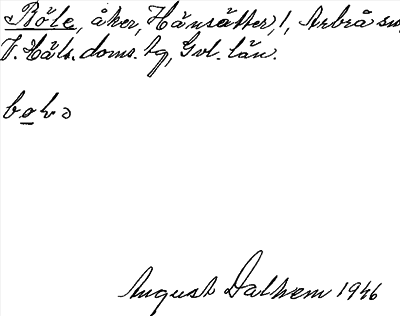 Böle, åker, Hänsätter, 1, Arbrå sn,
V. Häls. doms. hg, Gvl. län.
August Dalhem 1946